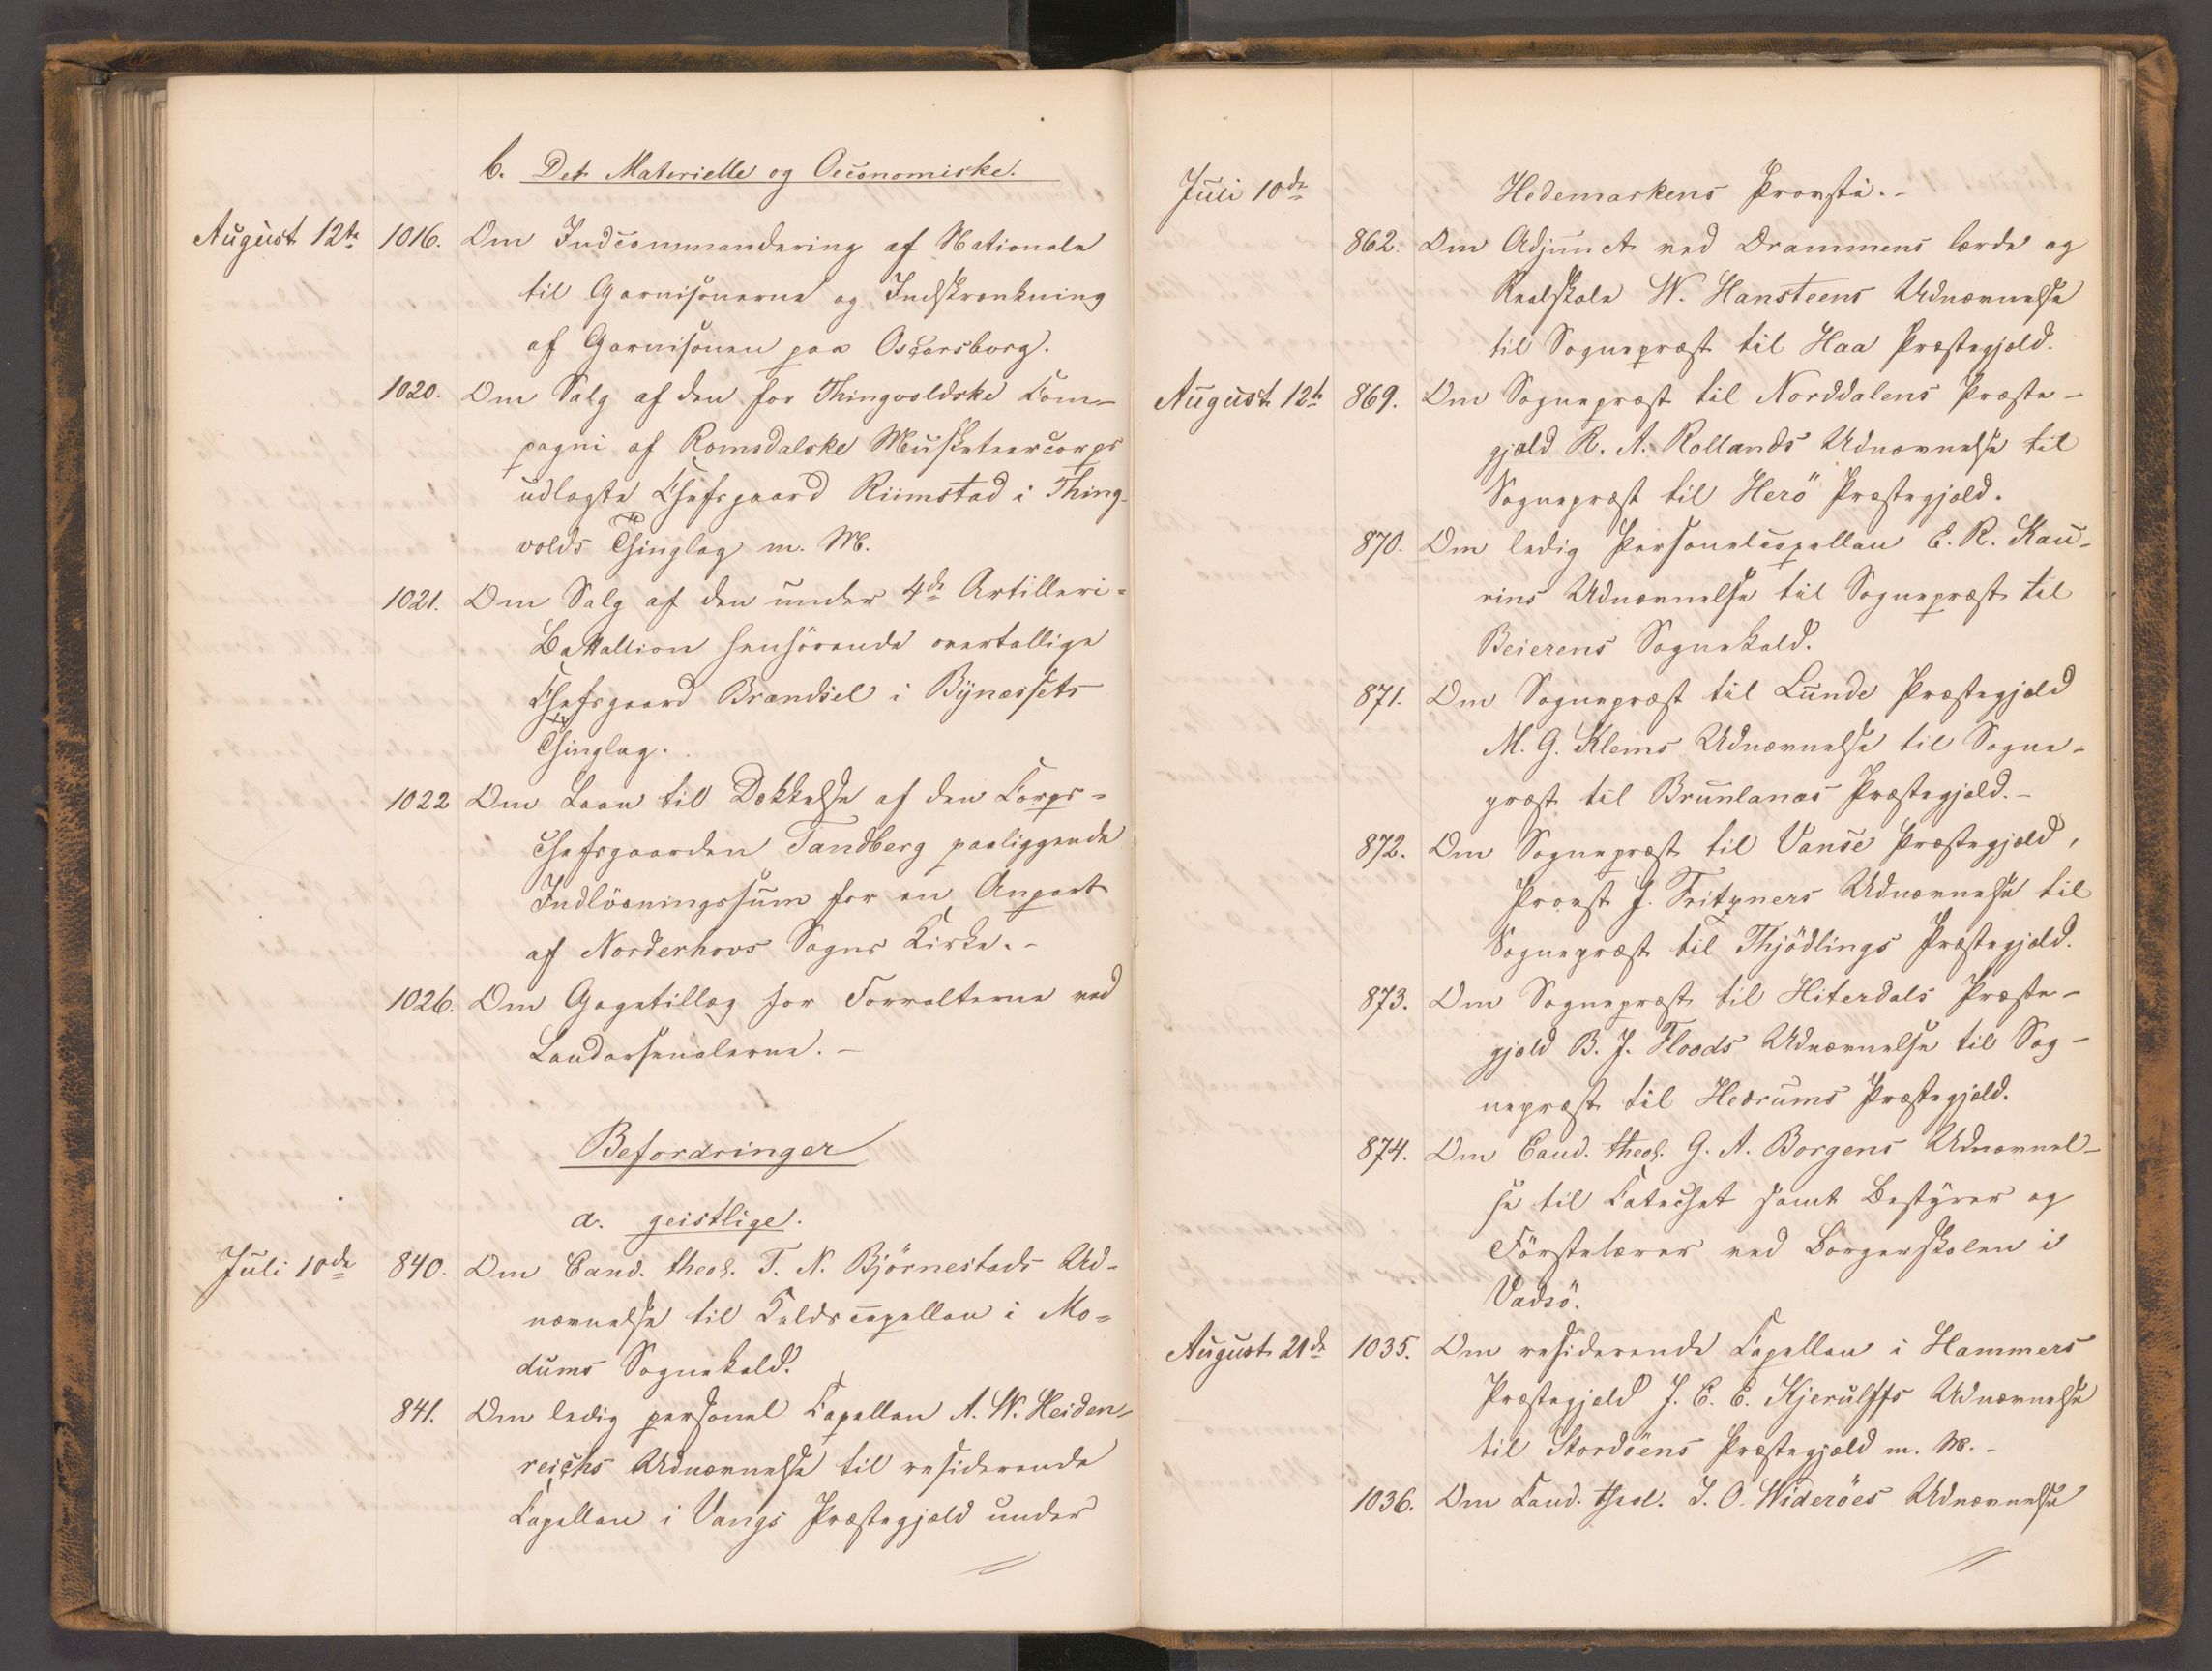 b. Det Materielle og Oeconomiske.
August 12te 1016. Om Indcommandering af Nationale
til Garnisonerne og Indskrænkning
af Garnisonen paa Oscarsborg.
1020. Om Salg af den for Thingvoldske Com-
pagni af Romsdalske Musketeercorps
udlagte Chefsgaard Riimstad i Thing-
volds Thinglag m. M.
1021. Om Salg af den under 4de Artilleri-
Battallion henhörende overtallige
Chefsgaard Brandsel i Bynæssets
Thinglag.
1022 Om Laan til Dækkelse af den Corps-
chefsgaarden Tandberg paaliggende
Indlösningssum for en Anpart
af Norderhovs Sogns Kirke.-
1026. Om Gagetillæg for Forvalterne ved
Landarsenalerne.-
Befordringer
a. geistlige.
Juli 10de 840. Om Cand. theol. T. N. Björnestads Ud-
nævnelse til Kaldscapellan i Mo-
dums Sognekald.
841. Om ledig personel Capellan A. W. Heiden-
reichs Udnævnelse til residerende
Capellan i Vangs Præstegjeld under
Juli 10de Hedemarkens Provsti.-
862. Om Adjunct ved Drammens lærde og
Realskole W. Hansteens Udnævnelse
til Sognepræst til Haa Præstegjeld.
August 12te 869. Om Sognepræst til Norddalens Præste-
gjeld R. A. Rollands Udnævnelse til
Sognepræst til Herö Præstegjeld.
870. Om ledig Personelcapellan E. R. Kau-
rins Udnævnelse til Sognepræst til
Beierens Sognekald.
871. Om Sognepræst til Lunde Præstegjeld
M. G. Klems Udnævnelse til Sogne-
præst til Brunlanæs Præstegjeld.-
872. Om Sognepræst til Vanse Præstegjeld,
Provst J. Fritzners Udnævnelse til
Sognepræst til Thjödlings Præstegjeld.
873. Om Sognepræst til Hiterdals Præste-
gjeld B. J. Floods Udnævnelse til Sog-
nepræst til Hedrums Præstegjeld.
874. Om Cand. theol. G. A. Borgens Udnævnel-
se til Catechet samt Bestyrer og
Förstelærer ved Borgerskolen i
Vadsö.
August 21de 1035. Om residerende Capellan i Hammers
Præstegjeld J. C. E. Kjerulffs Udnævnelse
til Stordöens Præstegjeld m. M.-
1036. Om Cand. theol. J. O. Wideröes Udnævnelse